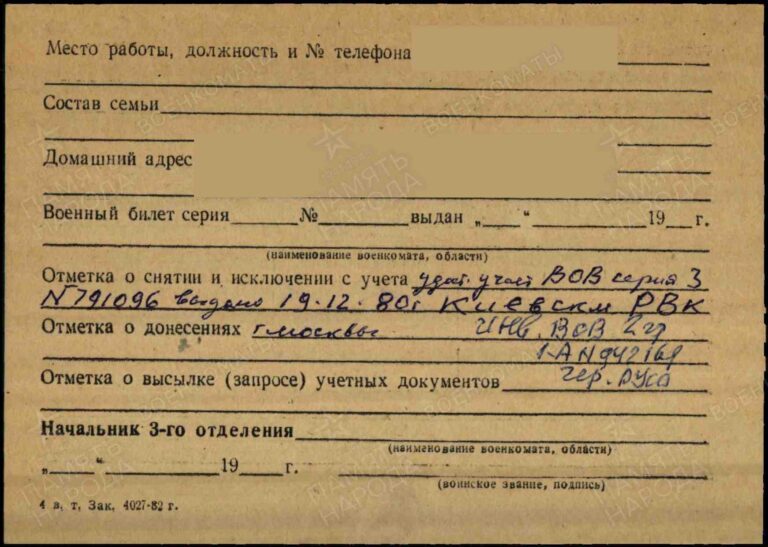 Место работы, должность и № телефона
Состав семьи
Домашний адрес
Военный билет серия № выдан „ “ 19 г.
(наименование военкомата, области)
Отметка о снятии и исключении с учета удост. участ ВОВ серия 3
N 791096 выдано 19.12.80г Киевским РВК
Отметка о донесениях г. Москвы Инв. ВОВ 2 гр
1-А N
Отметка о высылке (запросе) учетных документов
Начальник 3-го отделения
(наименование военкомата, области)
„ “ 19 г.
(воинское звание, подпись)
4 в. т. Зак. 4027-82 г.
ПАМЯТЬ НАРОДА
ВОЕНКОМАТЫ